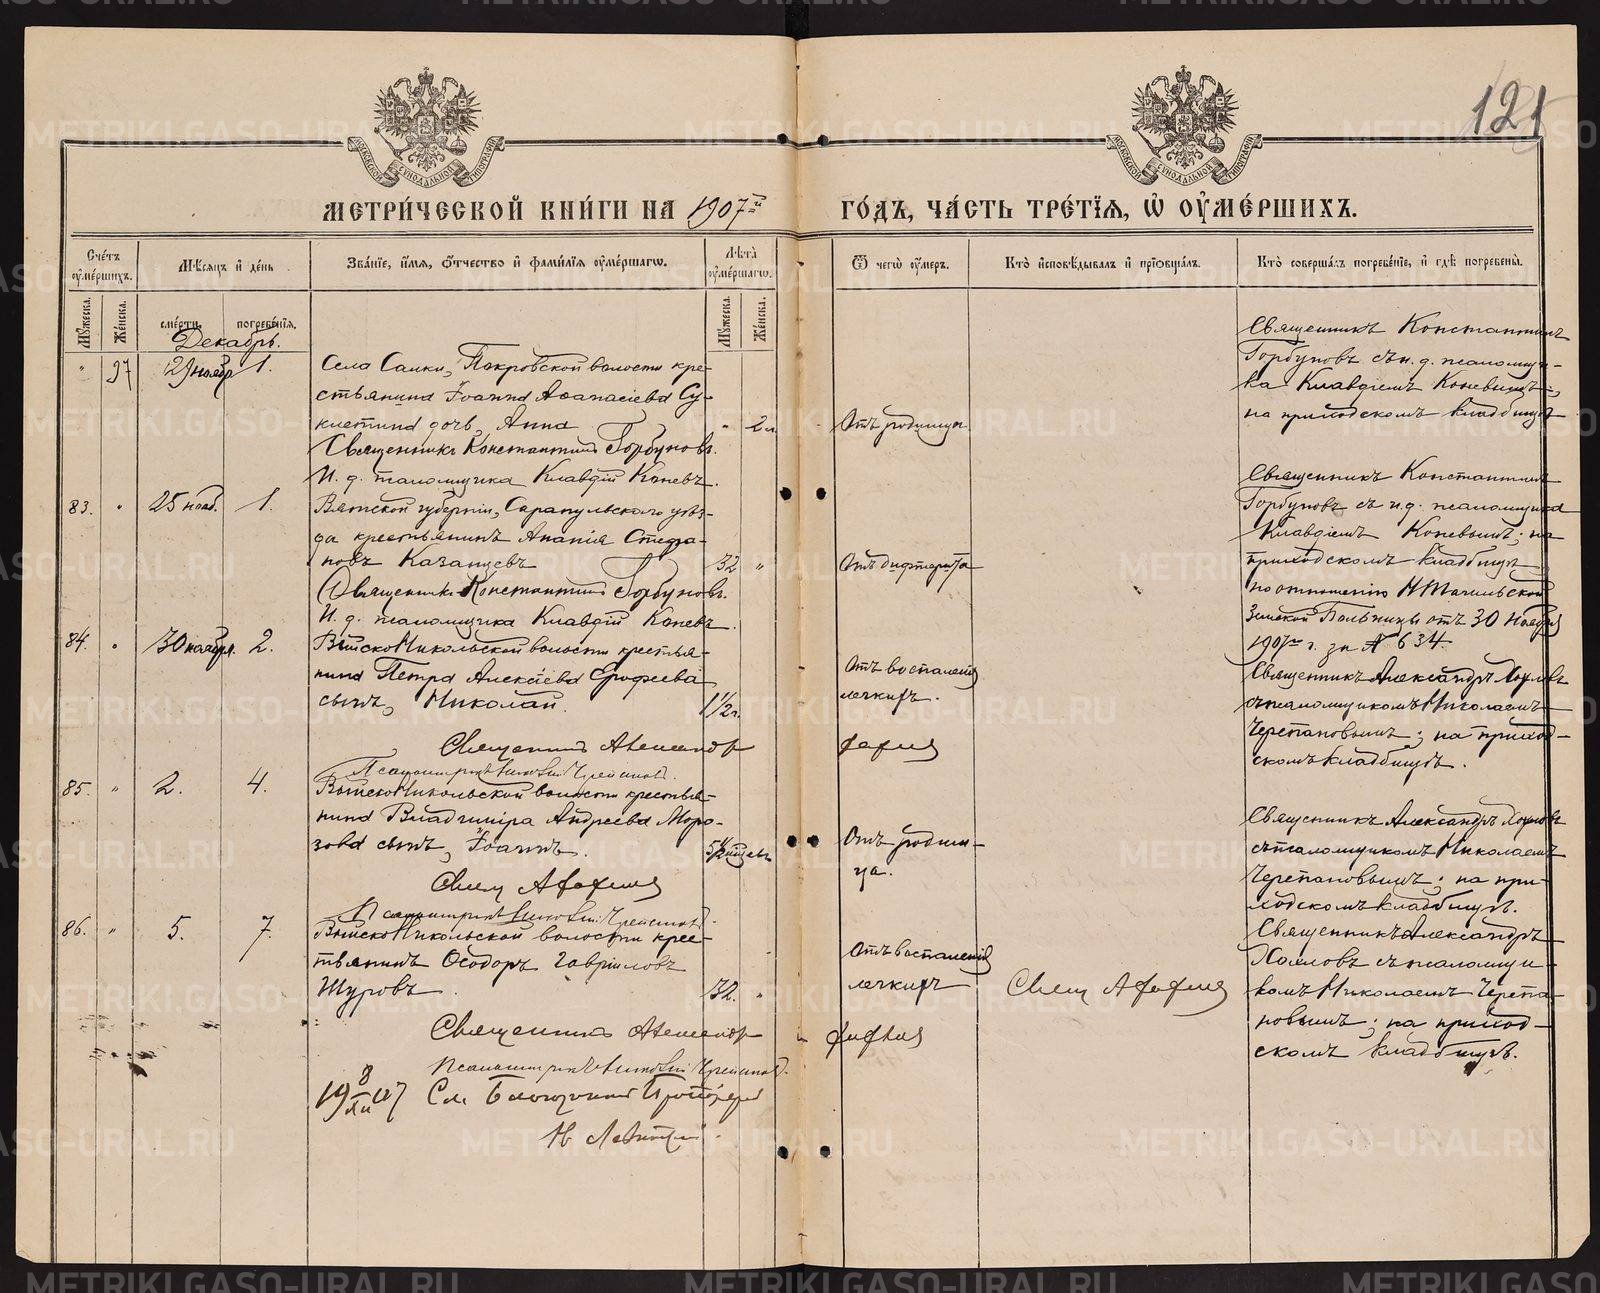 121
МЕТРИ́ЧЕСКОЙ КНИ́ГИ НА 1907й ГО́ДЪ, ЧА́СТЬ ТРЕ́ТЇѦ, Ѡ҆ ОУ҆МЕ́РШИХЪ.
Сче́тъ оу҆ме́ршихъ.
Мѣ́сяцъ и҆ де́нь
Зва́нїе, и҆́мя, ѻ҆́тчество и҆ фами́лїя оу҆ме́ршагѡ.
Лѣ́та оу҆ме́ршагѡ.
Ѿ чегѡ̀ оу҆́меръ.
Кто̀ и҆сповѣ́дывалъ и҆ прїѡбща́лъ.
Кто̀ соверша́лъ погребе́нїе, и҆ гдѣ̀ погребены̀.
Мꙋ́жеска.
Же́нска.
сме́рти.
погребе́нїя.
Мꙋ́жеска.
Же́нска.
Декабрь.
" 97 29 ноябр 1.
Села Салки, Покровской волости кре-
стьянина Іоанна Аѳанасіева Су-
дочь, Анна " 2 л.
Священникъ Константинъ Горбуновъ.
И. д. псаломщика Клавдій Коневъ.
Отъ родимца
Священникъ Константинъ
Горбуновъ съ и. д. псаломщи-
ка Клавдіемъ Коневымъ;
на приходскомъ кладбищѣ
83. " 25 нояб. 1.
Вятской губерніи, Сарапульскаго уѣз-
да крестьянинъ Ананія Стефа-
новъ Казанцевъ 32 "
Священникъ Константинъ Горбуновъ.
И. д. псаломщика Клавдій Коневъ.
Отъ дифтерита
Священникъ Константинъ
Горбуновъ съ и. д. псаломщика
Клавдіемъ Коневымъ; на
приходскомъ кладбищѣ
по отношенію Н Тагильской
Земской Больницы отъ 30 Ноября
1907 г. за № 634.
84. " 30 ноября. 2.
Выйско Никольской волости крестья-
нина Петра Алексіева Ерофеева
сынъ, Николай. 1 1/2 г.
Священникъ Александръ
Псаломщикъ Николай Черепановъ.
Отъ воспаленія
легкихъ.
Священникъ Александръ Хохловъ
съ псаломщикомъ Николаемъ
Черепановымъ; на приход-
скомъ кладбищѣ.
85. " 2. 4.
Выйско Никольской волости крестья-
нина Владиміра Андреева Моро-
зова сынъ, Іоаннъ.
Псаломщикъ Николай Черепановъ.
Отъ родим-
ца.
Священникъ Александръ Хохловъ
съ псаломщикомъ Николаемъ
Черепановымъ; на при-
ходскомъ кладбищѣ.
86. " 5. 7.
Выйско Никольской волости крес-
тьянинъ Ѳеодоръ Гавріиловъ
Шуровъ. 32. "
Священникъ Александръ
Псаломщикъ Николай Черепановъ.
Отъ воспаленія
легкихъ
Священникъ Александръ
Хохловъ съ псаломщи-
комъ Николаемъ Черепа-
новымъ; на приход-
скомъ кладбищѣ.
19 8/XII 07 См. Благочинный Протоіерей
METRIKI.GASO-URAL.RU